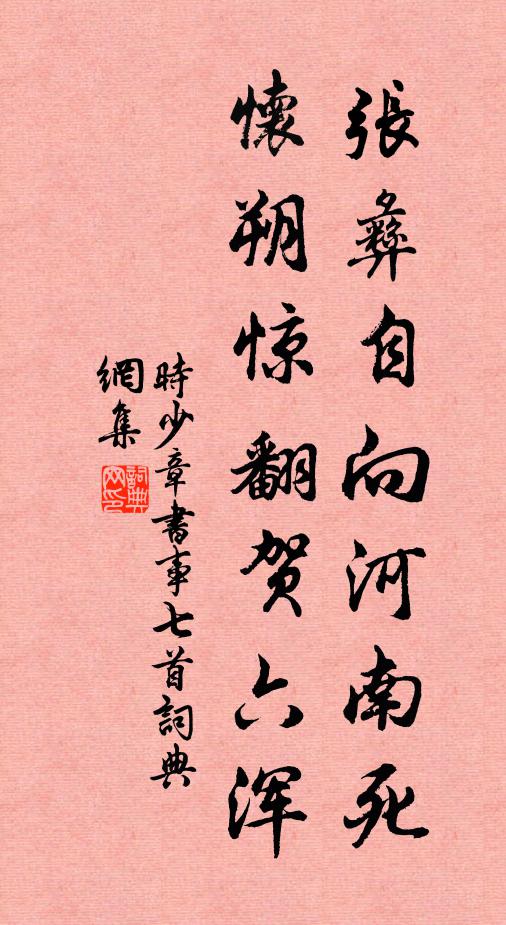 張彝自向河南死
懷朔惊翻贺六浑
時少章書事七首詞典
網集
詞典